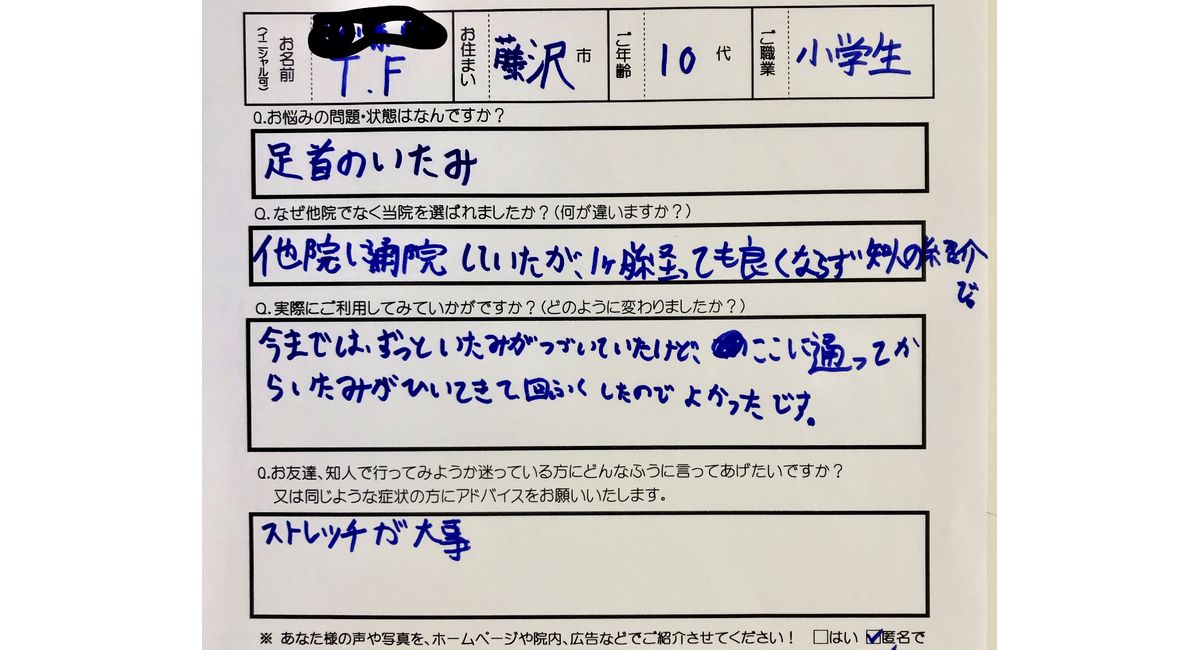 お名前 (イニシャル可) T.F お住まい 藤沢 市 ご年齢 10 代 ご職業 小学生
Q.お悩みの問題・状態はなんですか?
足首のいたみ
Q.なぜ他院でなく当院を選ばれましたか?(何が違いますか?)
他院に通院していたが、1ヶ月経っても良くならず知人の紹介
で。
Q.実際にご利用してみていかがですか?(どのように変わりましたか?)
今までは、ずっといたみがつづいていたけど、ここに通ってか
らいたみがひいてきて回ふくしたのでよかったです。
Q.お友達、知人で行ってみようか迷っている方にどんなふうに言ってあげたいですか?
又は同じような症状の方にアドバイスをお願いいたします。
ストレッチが大事
※ あなた様の声や写真を、ホームページや院内、広告などでご紹介させてください! □はい ☑匿名で